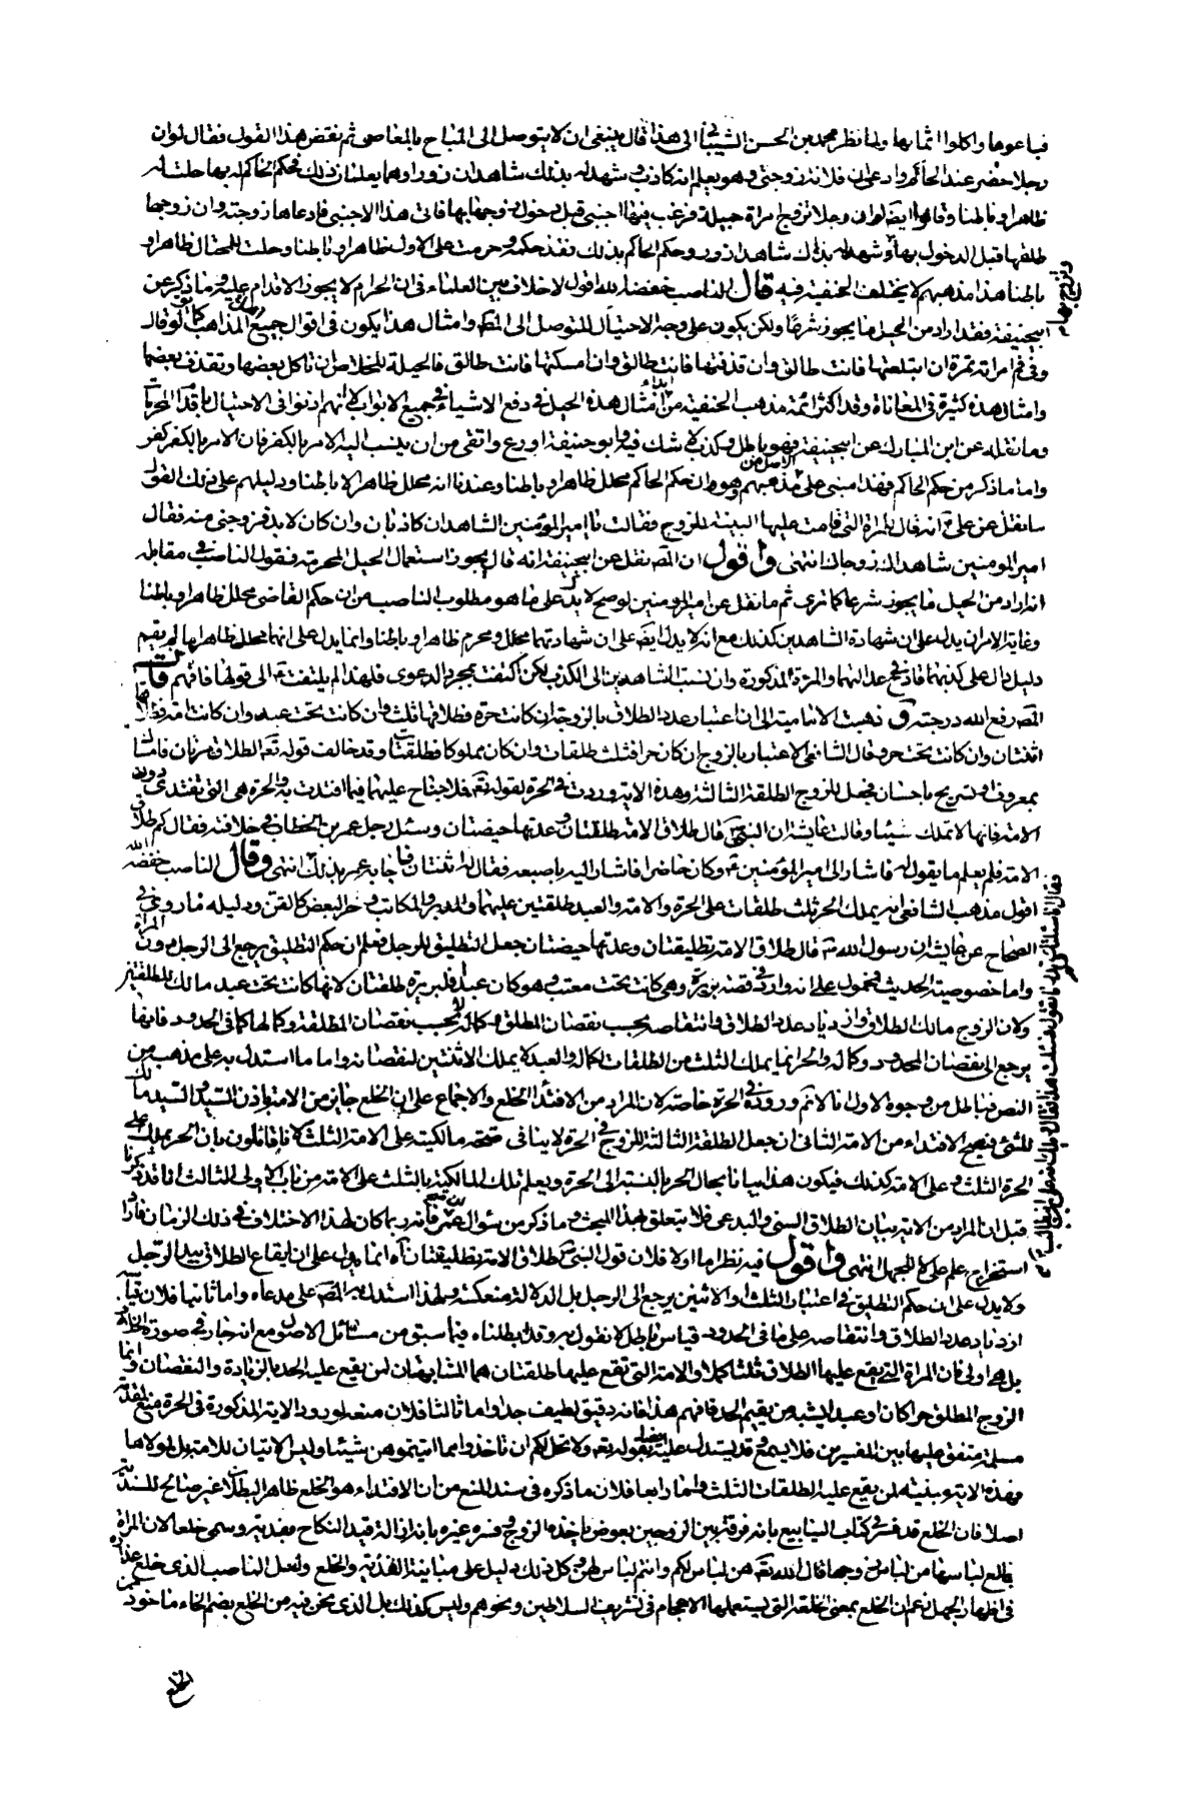 فباعوها واكلوا اثمانها ولما نظر محمد بن الحسن الشيباني الى هذا قال ينبغي ان لا يتوصل الى المباح بالمعاصي ثم نقض هذا القول فقال لو ان
رجلا حضر عند الحاكم وادعى ان فلانة زوجتي وهو يعلم انه كاذب وشهد له بذلك شاهدان زورا وهما يعلمان ذلك فحكم الحاكم له بها حلت له
ظاهرا وباطنا وقالوا ايضا لو ان رجلا تزوج امراة جميلة فرغب فيها اجنبي قبل دخول زوجها بها فاتى هذا الاجنبي فادعاها زوجته وان زوجها
طلقها قبل الدخول بها وشهد له بذلك شاهدا زور وحكم الحاكم بذلك نفذ حكمه وحرمت على الاول ظاهرا وباطنا وحلت للمحتال ظاهرا و
باطنا هذا مذهبهم لا يختلف الحنفية فيه قال الناصب خفضه الله اقول لا خلاف بين العلماء في ان الحرام لا يجوز الاقدام عليه وما ذكر عن
ابيحنيفة فقد اراد من الحيل ما يجوز شرعا ولكن يكون على وجه الاحتيال للتوصل الى الحكم وامثال هذا يكون في اقوال جميع المذاهب كما لو قال
وفي فم امراته تمرة ان ابتلعتها فانت طالق وان قذفتها فانت طالق وان امسكتها فانت طالق فالحيلة للخلاص ان تاكل بعضها وتقذف بعضها
وامثال هذه كثيرة في المعاناة وقد اكثر ائمة مذهب الحنفية من امثال هذه الحيل في دفع الاشياء في جميع الابواب لا انهم اذنوا في الاحتيال باقدام المحرمات
وما نقله عن ابن المبارك عن ابيحنيفة فهو باطل وكذب لا شك فيه وابو حنيفة اورع واتقى من ان ينسب اليه الامر بالكفر فان الامر بالكفر كفر
واما ما ذكر من حكم الحاكم فهذا مبني على مذهبهم وهو ان حكم الحاكم محلل ظاهرا وباطنا وعندنا انه محلل ظاهرا لا باطنا ودليلهم على ذلك القول
ما نقل عن علي انه قال للمراة التي قامت عليها البينة للزوج فقالت يا امير المؤمنين الشاهدان كاذبان وان كان لا بد فزوجني منه فقال
امير المومنين شاهداك زوجاك انتهى واقول ان المص نقل عن ابيحنيفة انه قال يجوز استعمال الحيل المحرمة فقول الناصب في مقابله
انه اراد من الحيل ما يجوز شرعا كما ترى ثم ما نقل عن امير المومنين لو صح لا يدل على ما هو مطلوب الناصب من ان حكم القاضي محلل ظاهرا وباطنا
وغاية الامر ان يدل على ان شهادة الشاهدين كذلك مع انه لا يدل ايضا على ان شهادتهما محلل ومحرم ظاهرا وباطنا وانما يدل على انهما محلل ظاهرا ما لم يقيم
دليل دال على كذبهما قادح في عدالتهما والمرة المذكورة وان نسبت الشاهدين الى الكذب لكن اكتفت بمجرد الدعوى فلهذا لم يلتفت الى قولها فافهم قال
المص رفع الله درجته ذهبت الامامية الى ان اعتبار عدد الطلاق بالزوجة ان كانت حرة فطلاقها ثلث وان كانت تحت عبد وان كانت امة فطلاقها
اثنتان وان كانت تحت حر وقال الشافعي الاعتبار بالزوج ان كان حرا فثلث طلقات وان كان مملوكا فطلقتان وقد خالف قوله تعالى الطلاق مرتان فامساك
بمعروف او تسريح باحسان فجعل للزوج الطلقة الثالثة وهذه الاية وردت في الحرة لقوله تعالى فلا جناح عليهما فيما افتدت به والحرة هي التي تفتدي دون
الامة فانها لا تملك شيئا وقالت عايشة ان النبي ص قال طلاق الامة طلقتان وعدتها حيضتان وسئل رجل عمر بن الخطاب في خلافته فقال كم طلاق
الامة فلم يعلم ما يقول له فاشار الى امير المؤمنين وكان حاضرا فاشار اليه باصبعه فقال له اثنتان فاجابه عمر بذلك انتهى وقال الناصب خفضه الله
اقول مذهب الشافعي انه يملك الحر ثلث طلقات على الحرة والامة والعبد طلقتين عليهما والمدبر والمكاتب وحر البعض كالقن ودليله ما روي في
الصحاح عن عايشة ان رسول الله ص قال طلاق الامة تطليقتان وعدتها حيضتان جعل التطليق للرجل فعلم ان حكم التطليق يرجع الى الرجل دون المراة
واما خصوصية الحديث فمحمول على انه وارد في قصة بريرة وهي كانت تحت معتب وهو كان عبدا فلبريرة طلقتان لانها كانت تحت عبد مالك للطلقتين
ولان الزوج مالك الطلاق وازدياد عدد الطلاق وانتقاصه بحسب نقصان المطلق وكماله لا بحسب نقصان المطلقة وكمالها كما في الحدود فانها
يرجع الى نقصان المحدود وكماله والحر انما يملك الثلث من الطلقات لكماله والعبد لا يملك الا ثنتين لنقصانه واما ما استدل به على مذهبه من
النص فباطل من وجوه الاول انا لا نم وروده في الحرة خاصة لان المراد من الافتداء الخلع والاجماع على ان الخلع جايز من الامة باذن السيد والسيد مالك
للشئ فيصح الافتداء من الامة الثاني ان جعل الطلقة الثالثة للزوج في الحرة لا ينافي صحة مالكيته على الامة الثلث لانا قائلون بان الحر يملك على
الحرة الثلث وعلى الامة كذلك فيكون هذا بيانا بحال الحر بالنسبة الى الحرة ويعلم تلك المالكية بالثلث على الامة من باب الاولى الثالث انا قد ذكرنا
قبل ان المراد من الاية بيان الطلاق السني والبدعي فلا يتعلق بهذا المبحث وما ذكر من سؤال عمر فانه ربما كان لهذا الاختلاف في ذلك الزمان فاراد
استخراج علم علي لا للجهل انتهى واقول فيه نظر اما اولا فلان قول النبي ص طلاق الامة تطليقتان آه انما يدل على ان ايقاع الطلاق بيد الرجل
ولا يدل على ان حكم التطليق في اعتبار الثلث او الاثنين يرجع الى الرجل بل الدلالة منعكسة ولهذا استدل به المص على مدعاه واما ثانيا فلان قياس
ازدياد عدد الطلاق وانتقاصه على ما في الحدود قياس باطل لا نقول به وقد ابطلناه فيما سبق من مسائل الاصول مع انه جار في صورة الخلاف
بل هي اولى فان المراة التي يقع عليها الطلاق ثلثا كملا والامة التي تقع عليها طلقتان هما المشابهتان لمن يقع عليه الحد بالزيادة والنقصان وانما
الزوج المطلق حرا كان او عبدا يشبه من يقيم الحد فافهم هذا فانه دقيق لطيف جدا واما ثالثا فلان منعه لورود الاية المذكورة في الحرة منع لمقدمة
مسلمة متفق عليها بين المفسرين فلا يسمع وقد يستدل عليه ايضا بقوله تعالى ولا يحل لكم ان تاخذوا مما اتيتموهن شيئا وليس الاتيان للامة بل لمولاها
فهذه الاية مبنية لمن يقع عليه الطلقات الثلث واما رابعا فلان ما ذكره في سند المنع من ان الافتداء هو الخلع ظاهر البطلان غير صالح للسندية
اصلا فان الخلع قد فسر في كتاب الينابيع بانه فرقة بين الزوجين بعوض ياخذه الزوج وفسره غيره بانه ازالة قيد النكاح بفدية وسمي خلعا لان المراة
تخلع لباسها من لباس زوجها قال الله تعالى هن لباس لكم وانتم لباس لهن وكل ذلك دليل على مباينة الفدية والخلع ولعل الناصب الذي خلع عذاره
في اظهار الجهل زعم ان الخلع بمعنى الخلعة التي يستعملها الاعجام في تشريف السلاطين ونحوهم وليس كذلك بل الذي نحن فيه من الخلع بضم الخاء ماخوذ
الخلع